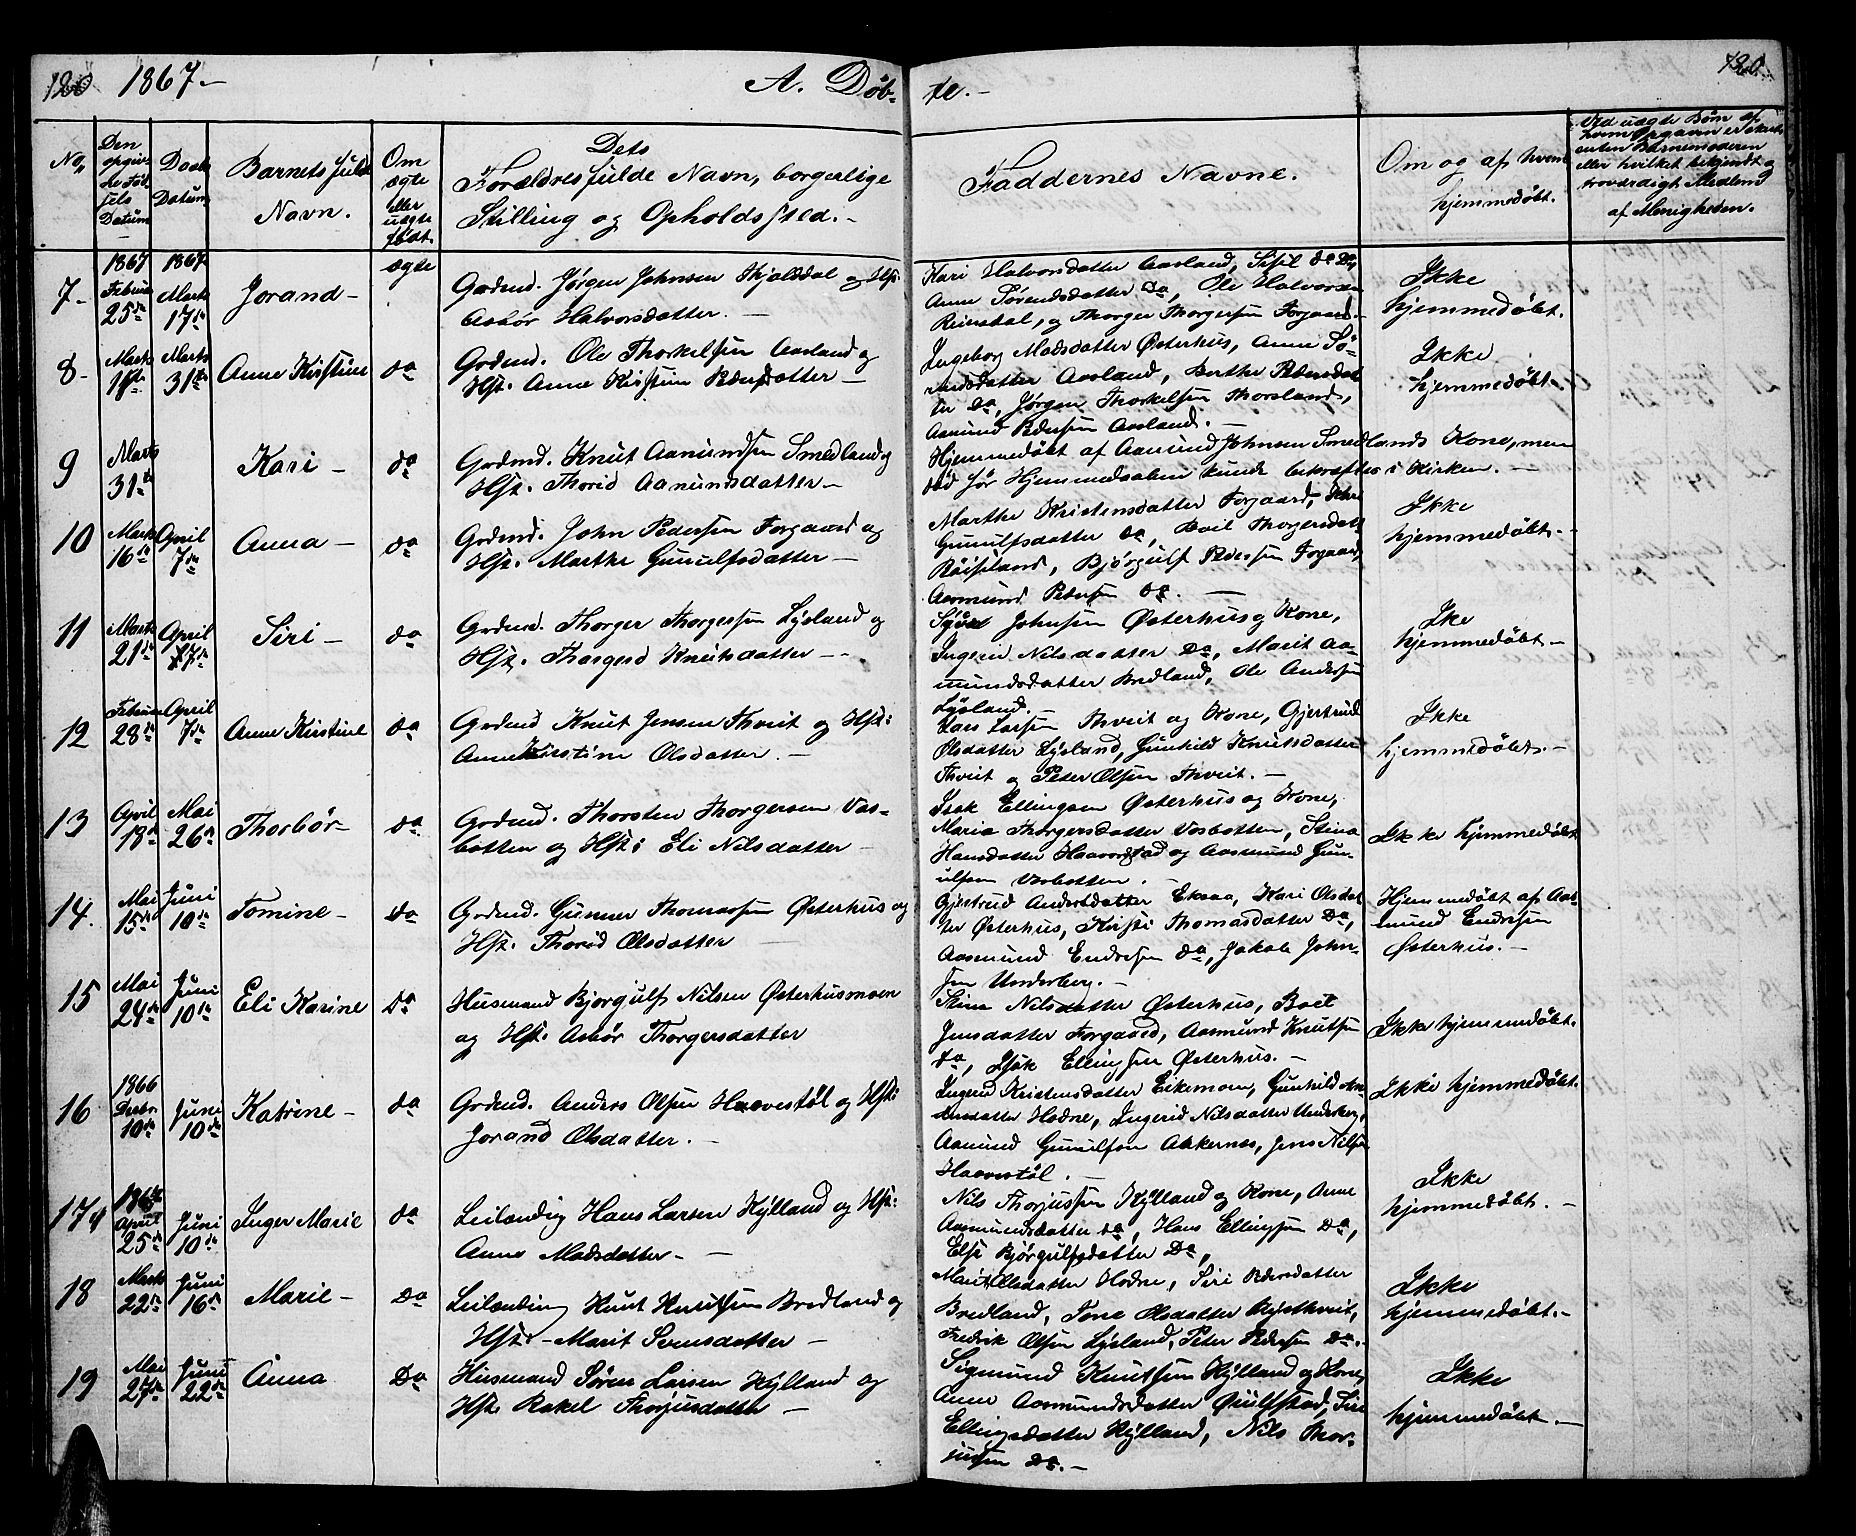 120 1867.- A. Døb- te.- 120.
No.
Den opgiv- ne Fød- sels Datum
Daabs Datum
Barnets fulde Navn.
Om ægte eller uægte født.
Dets Forældres fulde Navn, borgerlige Stilling og Opholdssted.-
Faddernes Navne.
Om og af hvem hjemmedøbt.
Ved uægte Børn af hvem Opgaven er skeet enten Barnemoderen eller hvilket bekjendt og troværdigt Medlem af Menigheden.
7- 1867 Februar 25de 1867 Marts 17de Jorand- ægte
Gadmd. Jørgen Johnsen Kjælsdal og Hst:
Asbør Halvorsdatter.-
Kari Halvorsdatter Aasland, Sisil do Do,
Anne Sørensdatter Do, Ole Halvorsen
Reiersdal, og Thorger Thorgersen Forgaard.-
Ikke
hjemmedøbt.
8- Marts Marts 31te Anne Kirstine do
Grdmd. Ole Thorkelsen Aasland og
Hst. Anne Kirstine Pedersdatter-
Ingeborg Madsdatter Østerhus, Anne Sø-
rensdatter Aasland, Berthe Pedersdat
ter Do, Jørgen Thorkelsen Thorsland,
Aamund Pedersen Aasland.-
Ikke
hjemmedøbt-
9 Marts 31te Kari- do
Grdmd. Knut Aanundsen Smedland og
Hst. Thorid Aanunsdatter-
Hjemmedøbt af Aamund Johnsen Smedlands Kone, men
død før Hjemmedaaben kunde bekræftes i Kirken.-
10 Marts 16de April 7de Anna- do
Grdmd. John Pedersen Forgaard og
Hst. Marthe Gunulfsdatter-
Marthe Kristensdatter Forgaard,
Gunulfsdatter do, Boil Thorgersdatt
Røisland, Bjørgulf Pedersen Forgaard,
Aamund Pedersen do.-
Ikke
hjemmedøbt.-
11 Marts 21de April 7de Siri- do
Grdmd. Thorger Thorgersen Lysland og
Hst. Thorgerd Knutsdatter-
Johnsen Østerhus og Kone,
Ingerid Nilsdatter Do, Marit Aa-
mundsdatter Bredland, Ole Andersen
Lysland.
Ike
hjemmedøbt-
12 Februar 28de April 7de Anne Kirstine do
Grdmd Knut Jensen Thveit og Hst:
Anne Kirstine Olsdatter.-
Lars Larsen Thveit og Kone, Gjertrud
Olsdatter Lysland, Gunhild Knutsdatter
Thveit og Peter Olsen Thveit.-
Ikke
hjemmedøbt.-
13 April 18de Mai 26de Thorbør- do
Grdmd. Thorsten Thorgersen Vas-
botten og Hst: Eli Nilsdatter-
Isak Ellingsen Østerhus og Kone,
Maria Thorgersdatter Vasbotten, Stina
Hansdatter Haaverstad og Aasmund Gun-
ulfsen Vasbotten.-
Ikke hjemmedøbt
14. Mai 15de Juni 10de Tomine- do
Grdmd. Gunner Thomassen Østerhus og
Hst. Thorid Olsdatter-
Gjertrud Andersdatter Ekaaa, Kari Olsdat
ter Østerhus, Kirsti Thomasdatter Do,
Aasmund Endresen do, Jakob John-
sen Underberg.-
Hjemmedøbt af Aas-
mund Endresen
Østerhus.-
15 Mai 24de Juni 10de Eli Karine Do
Husmand Bjørgulf Nilsen Østerhusmoen
og Hst. Asbør Thorgersdatter
Stine Nilsdatter Østerhus, Boel
Jensdatter Forgaard, Aasmund Knutsen
do, Isak Ellingsen Østerhus.-
Ikke hjemmedøbt.
16 1866 Decbr. 10de Juni 10de Katrine- do
Grdmd. Anders Olsen Haavestøl og Hst:
Jorand Olsdatter.-
Ingerid Kristensdatter Eikemoen, Gunhild An-
dersdatter Hodne, Ingerid Nilsdatter Underberg,
Aamund Gunulfsen Aakernes, Jens Nilsen
Haavestøl.-
Ikke hjemmedøbt.
17 1867 April 25de Juni 10de Inger Marie do
Leilænding Hans Larsen Kylland og Hst:
Anne Madsdatter-
Nils Thorjussen Kylland og Kone, Anne
Aasmundsdatter do, Hans Ellingsen Do,
Else Bjørgulfsdatter Do,
Ikke
hjemmedøbt.-
18 Marts 22de Juni 16de Marie- Do
Leilænding Knut Knutsen Bredland og
Hst- Marit Svensdatter-
Marit Olsdatter Hodne, Siri Pedersdatter
Bredland, Tone Olsdatter Rysthveit,
Fredrik Olsen Lysland, Peter Pedersen Do.-
Ikke
hjemmedøbt.-
19 Mai 27de Juni 22de Anna Do
Husmand Søren Larsen Kylland og
Hst. Rakel Thorjusdatter-
Sigmund Knutsen Kylland og Kone,
Anne Aasmundsdatter Qvilstad, Siri
Ellingsdatter Kylland, Nils Thor-
jussen Do.-
Ikke
hjemmedøbt.-